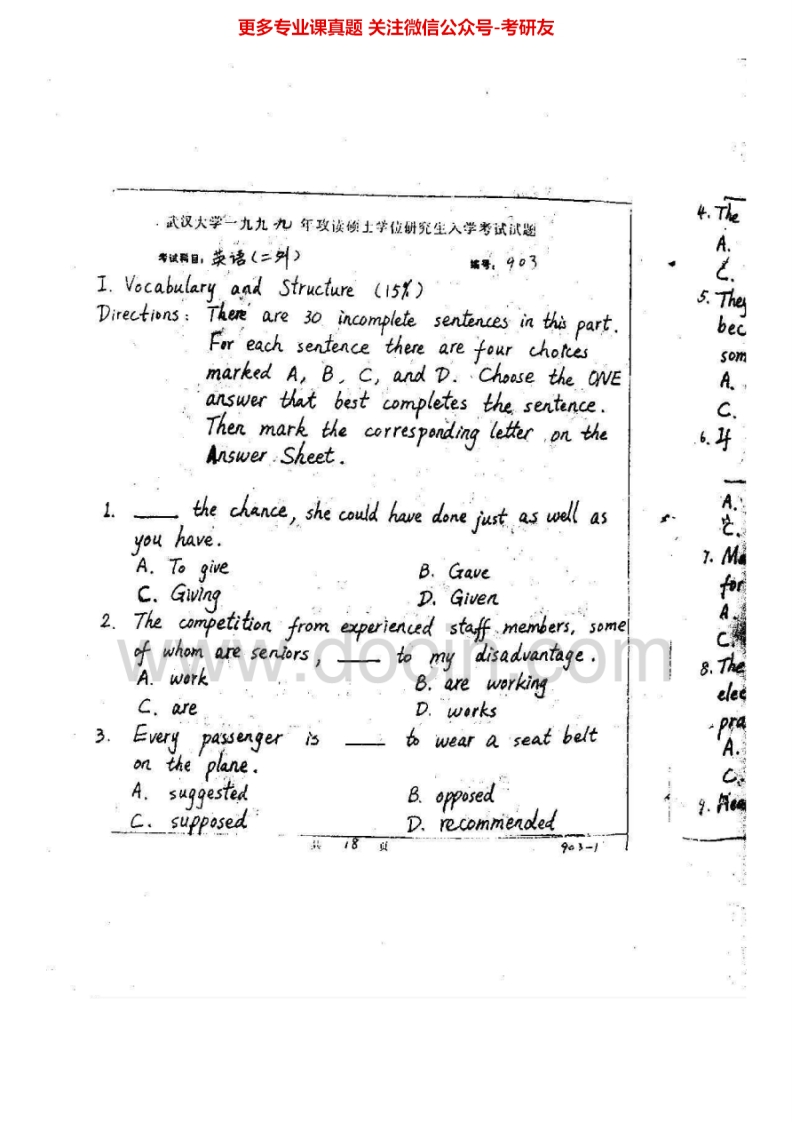 更多专业课真题 关注微信公众号-考研友
武汉大学一九九九年攻读硕士学位研究生入学考试试题
考试科目：英语(二外) 编号：903
I. Vocabulary and Structure (15%)
Directions: There are 30 incomplete sentences in this part.
For each sentence there are four choices
marked A, B, C, and D. Choose the ONE
answer that best completes the sentence.
Then mark the corresponding letter on the
Answer Sheet.
1. ____ the chance, she could have done just as well as
you have.
A. To give B. Gave
C. Giving D. Given
2. The competition from experienced staff members, some
of whom are seniors, ____ to my disadvantage.
A. work B. are working
C. are D. works
3. Every passenger is ____ to wear a seat belt
on the plane.
A. suggested B. opposed
C. supposed D. recommended
共 18 页 903-1
4. The
A.
C.
5. They
bec
som
A.
C.
6. If
A.
C.
7. Ma
for
A.
C.
8. The
elec
pra
A.
C.
9.
www.docin.com